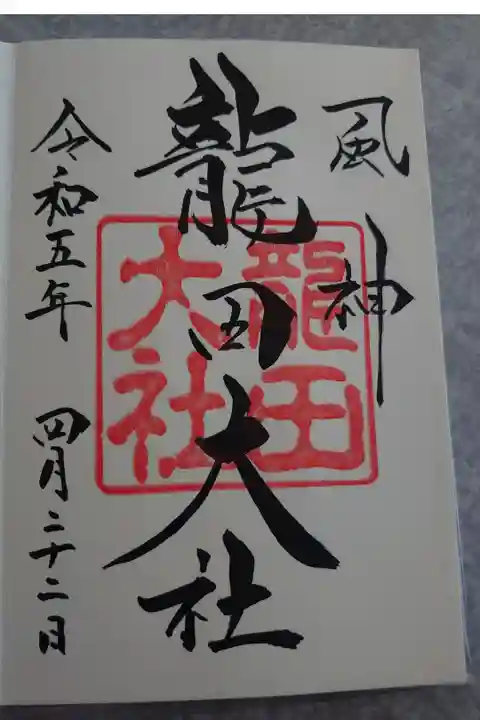 風神
龍田大社
龍田
大社
令和五年 四月二十二日